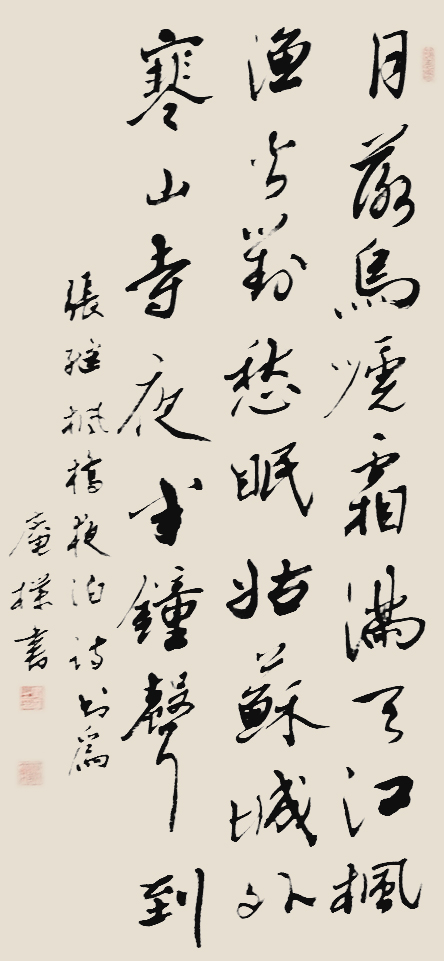 月落烏嗁霜滿天江楓
漁火對愁眠姑蘇城外
寒山寺夜半鐘聲到
張繼楓橋夜泊詩以爲
庵樸書